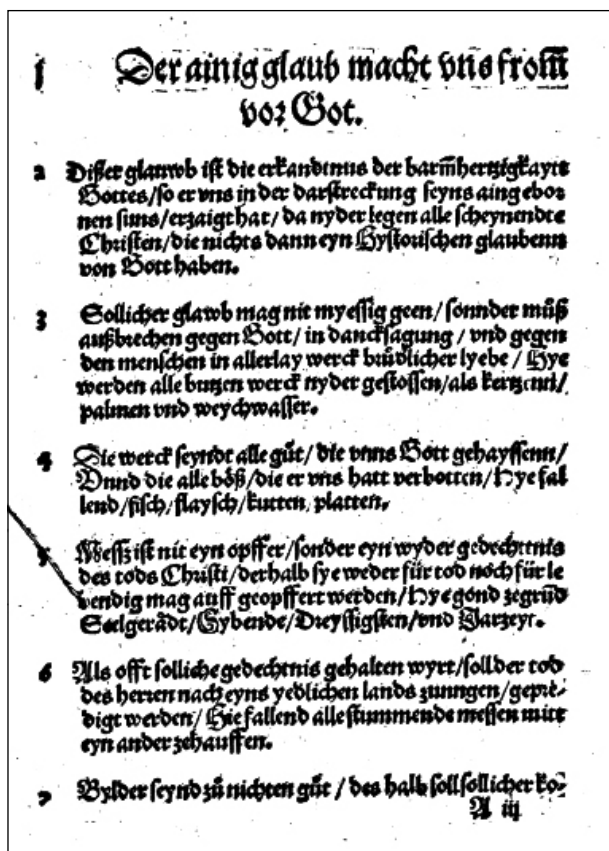 1 Der ainig glaub macht vns from̄
vor Got.
2 Dißer glauwb ist die erkandtnus der barm̄hertzigkayts
Gottes/so er vns in der darstreckung seyns aing ebor
nen suns/erzaigt hat/da nyder legen alle scheynendte
Christen/die nichts dann eyn Hystorischen glaubenn
von Gott haben.
3 Sollicher glawb mag nit myessig geen/sonnder můß
außbrechen gegen Gott/in dancksagung/vnd gegen
den menschen in allerlay werck brůdlicher lyebe/Hye
werden alle butzen werck nyder gestossen/als kertzenn/
palmen vnd weychwasser.
4 Die werck seyndt alle gůt/die vnns Gott gehayssenn/
Vnnd die alle bőß/die er vns hatt verbotten/Hye fal
lend/fisch/flaysch/kutten, platten.
5 Mess ist nit eyn opffer/sonder eyn wyder gedechtnis
des tods Christi/derhalb sye weder für tod noch für le
bendig mag auff geopffert werden/Hye gond zegrůd
Seelgerådt/Sybende/Dreyssigsten/vnd Jarzeyt.
6 Als offt solliche gedechtnis gehalten wyrt/soll der tod
des herren nach eyns yedlichen lands zunngen/gepre-
digt werden/Hie fallend alle stummende messen mitt
eyn ander zehauffen.
7 Bylder seynd zů nichten gůt/des halb soll sollicher ko-
A iij